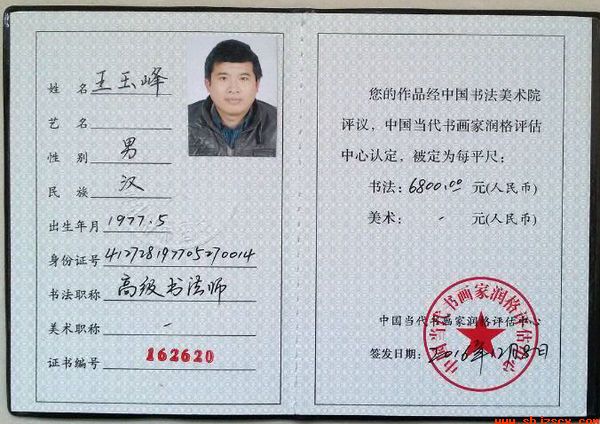 姓名 王玉峰
艺名
性别 男
民族 汉
出生年月 1977.5
身份证号 412728197705270014
书法职称 高级书法师
美术职称 -
证书编号 162620
您的作品经中国书法美术院
评议，中国当代书画家润格评估
中心认定，被定为每平尺：
书法：6800.00 元(人民币)
美术： - 元(人民币)
中国当代书画家润格评估中心
中国当代书画家润格评估中心
签发日期：2016年12月8日
www.shjzscx.com